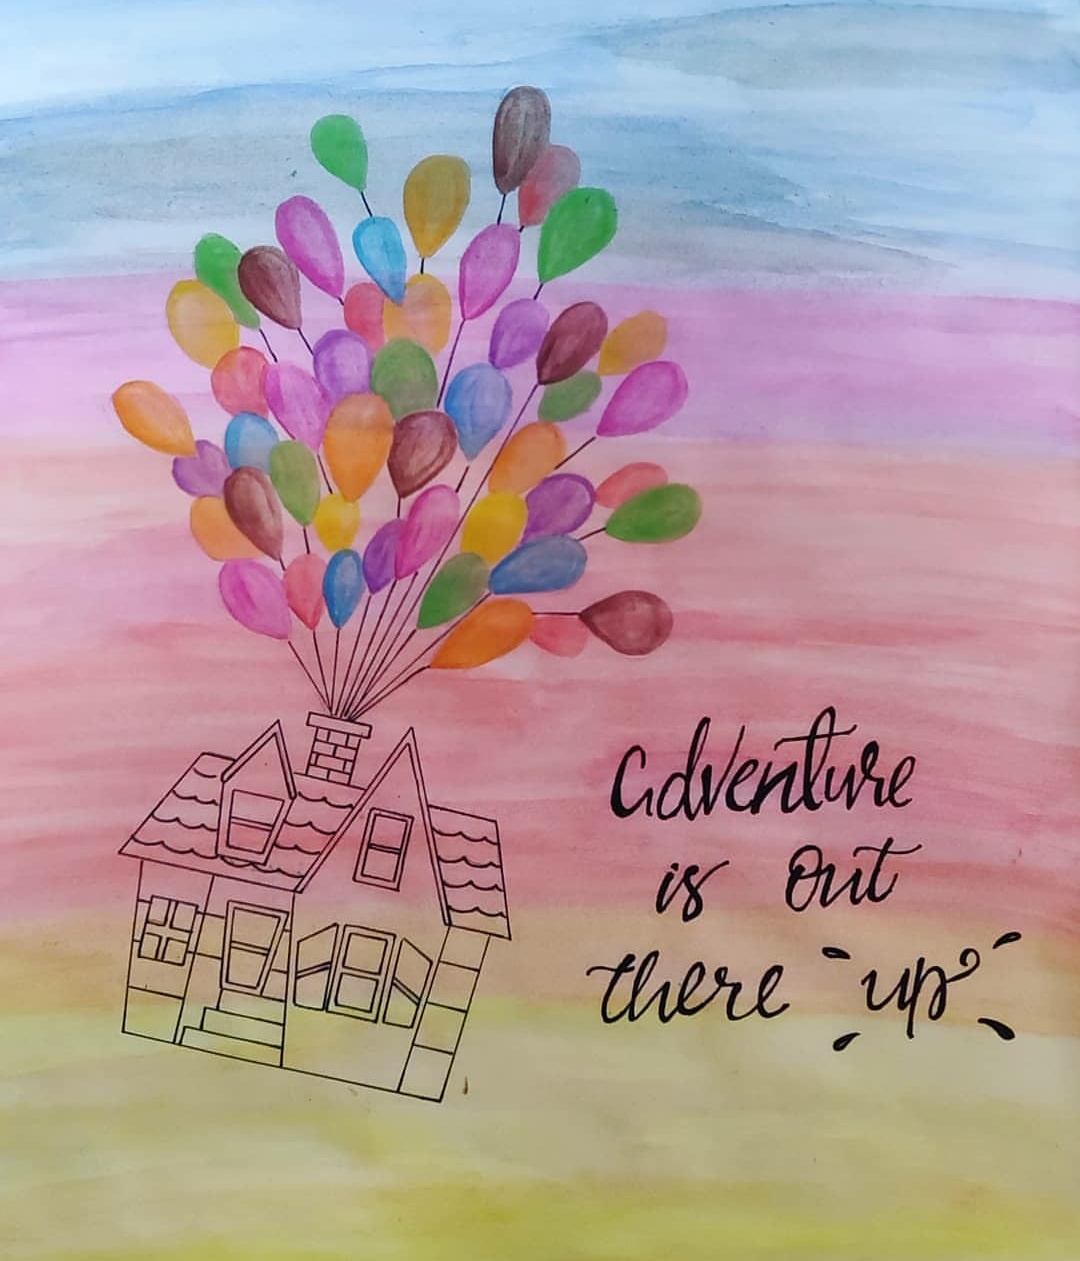 adventure
is out
there "up"